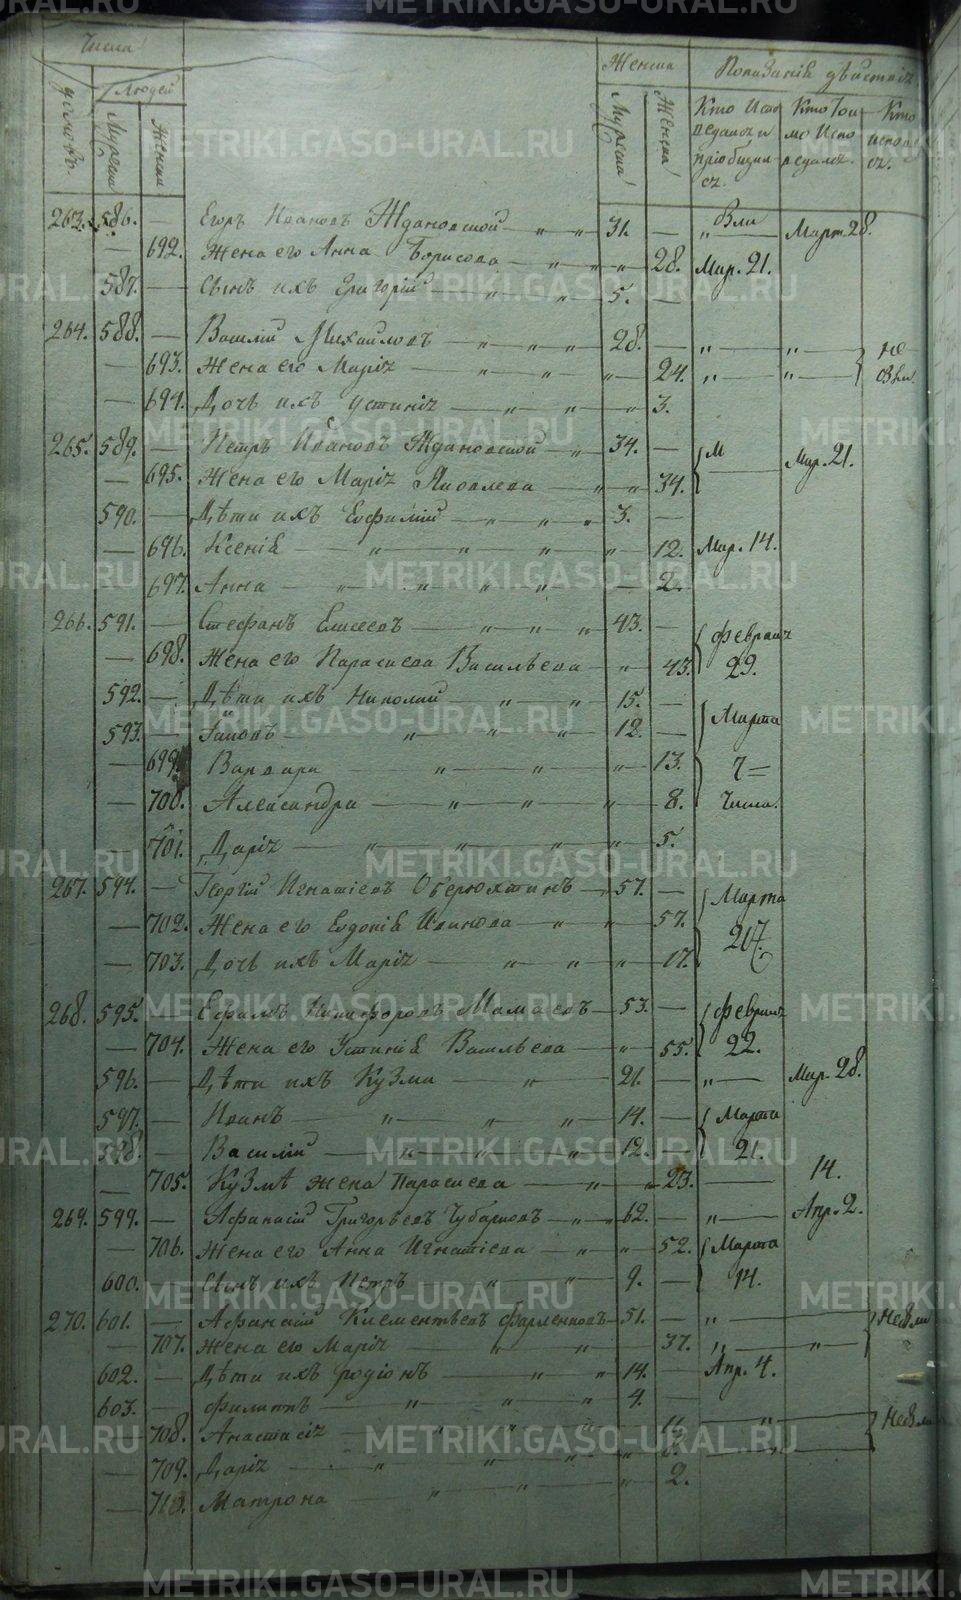 Числа
Женска
Показаніе действія
домовъ.
Людей
Мужеска
Женска
Мужска
Женска
Кто Испо
ведался и
пріобщил
ся.
Кто Тол
ко Испо
ведался.
Кто
ся.
263. 586. — Егоръ Ивановъ Ждановской — " — " 31. — " Март. 28.
— 692. Жена его Анна Борисова — " — " " 28. Мар. 21.
587. — Сынъ ихъ Григорій — " — " 5. —
264. 588. — Василій Михайловъ — " — " — " 28. — " — " — не
— 693. Жена его Марія — " — " — " — 24. " — " —
— 694. Дочь ихъ Устинія — " — " — " 3.
265. 589. — Петръ Ивановъ Ждановской — " 34. — Мар. 21.
— 695. Жена его Марія Яковлева — " — " 34.
590. — Дѣти ихъ Евфимій — " — " — " 3. —
— 696. Ксенія — " — " — " — " — 12. Мар. 14.
697. Анна — " — " — " — " — 2.
266. 591. — Стефанъ Елисеевъ — " — " — " 43. — февраля
— 698. Жена его Парасковa Васильева — " — 43. 29.
592. — Дѣти ихъ Николай — " — " 15. — Марта
593. — Іаковъ — " — " — " 12. —
— 699. Варвара — " — " — " — 13. 7 =
— 700. Александра — " — " — " — 8. Числа.
— 701. Дарія — " — " — " — " — 5.
267. 594. — Георгій Игнатіевъ Оберюхтинъ — 57. — Марта
— 702. Жена его Евдокія Иванова — " — " 57.
— 703. Дочь ихъ Марія — " — " — " — 17.
268. 595. — Ефимъ Никифоровъ Мамаевъ — 53. — февраля
— 704. Жена его Устинія Васильева — " — 55. 22.
596. — Дѣти ихъ Кузма — " — 21. — " — Мар. 28.
597. — Иванъ — " — " — " 14. — Марта
598. — Василій — " — " — " 12. — 21.
— 705. Кузмѣ жена Парасковa — " — " 23. — 14.
269. 599. — Афанасій Григорьевъ Чубарковъ — " — " 62. — " — Апр. 2.
— 706. Жена его Анна Игнатіева — " — " — 52. Марта
600. — Сынъ ихъ Петръ — " — " 9. — 14.
270. 601. — Афанасій Клементьевъ — 51. — " —
— 707. Жена его Марія — " — " — 37. " — " —
602. — Дѣти ихъ Родіонъ — " — " 14. — Апр. 4.
603. — Филиппъ — " — " — " 4. —
— 708. Анастасія — " — " — "
— 709. Дарія — " — " — "
— 710. Матрона — " — " — " — 2.
METRIKI.GASO-URAL.RU